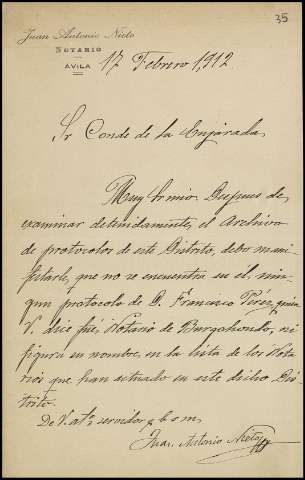 35
Juan Antonio Nieto
NOTARIO
AVILA
17 Febrero 1,912
Sr Conde de la Enjarada
Muy Sr mio: Despues de
examinar detenidamente, el Archivo
de protocolos de este Distrito, debo mani-
festarle, que no se encuentra en el, nin-
gun protocolo de D. Francisco Perez, quien
V. dice fué, Notario de Burgohondo, ni
figura su nombre, en la lista de los Nota
rios que han actuado en este dicho Dis
trito.
De V. atº servidor q b s m
Juan Antonio Nieto